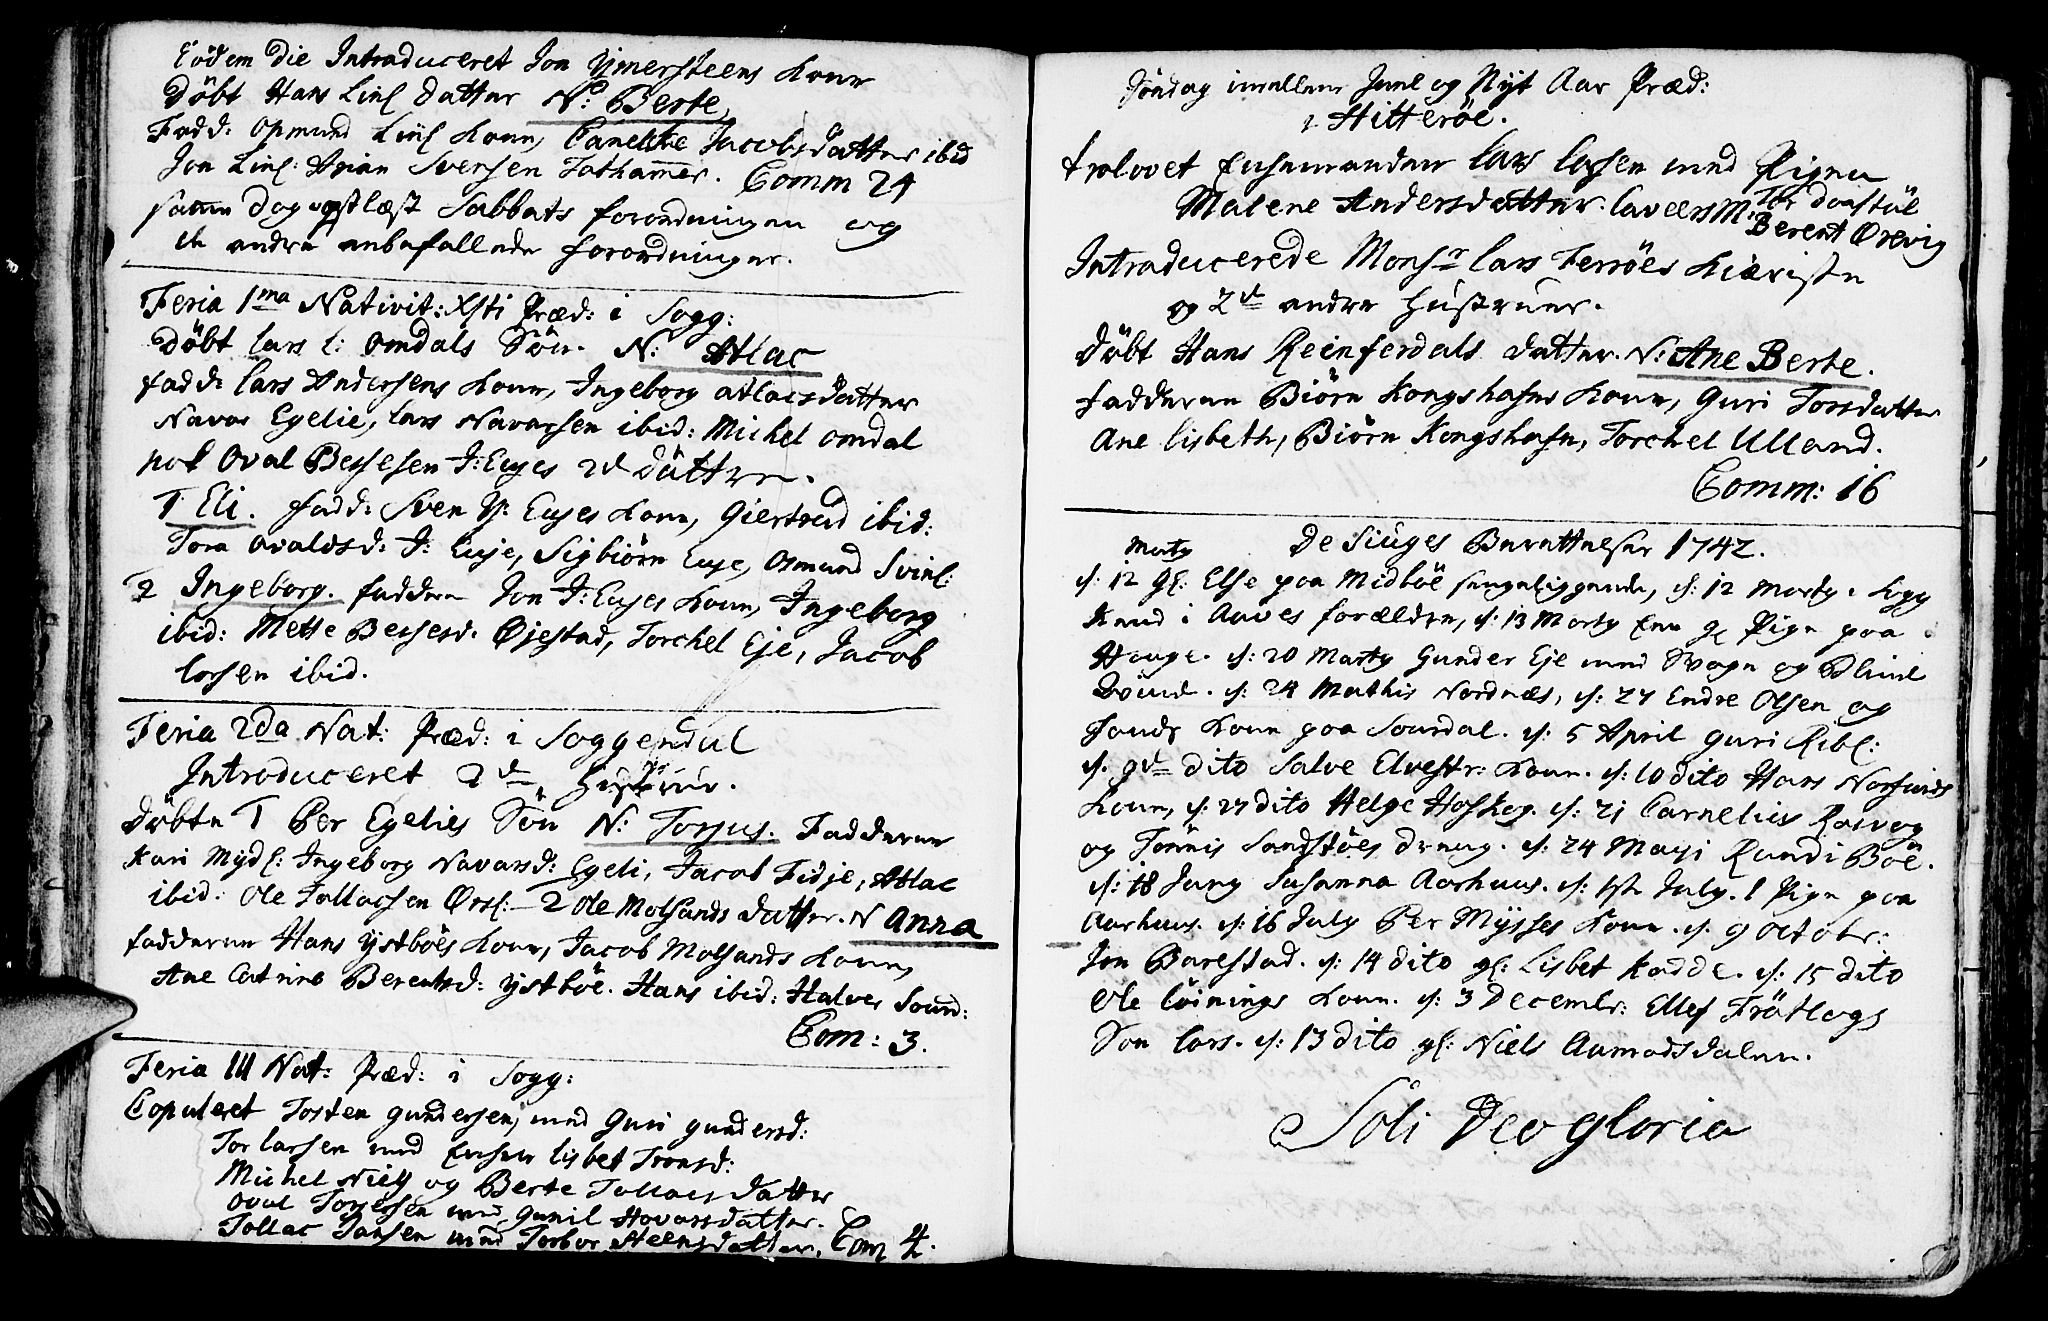 Eodem Die Introduceret Jon Ymersteens Kone
Döbt Hans Linl Datter N: Berte
Fadd: Osmund Linl Kone, Canelke Jacobsdatter ibid
Jon Linl: Arian Svensen Tothammer. Comm 24
samme Dag oplæst Sabbats forordningen og
de andre anbefallede forordninger.
Feria 1ma Nativit: Xsti Præd: i Sogg:
Döbt Lars l: Omdals Sön. N: Atlac
fadd: Lars Andersens Kone, Ingeborg Atlacsdatter
Navar Egelie, Lars Navarsen ibid: Michel Omdal
nok Oval Bersesen I: Eyes 2de Döttre.
1 Eli. fadd: Sven Y: Eyes Kone, Giertrud ibid:
Tora Ovalsd: I: Eyje, Sigbiörn Eye, Osmund Svinl:
2 Ingeborg. faddere Jon I: Eyes Kone, Ingeborg
ibid: Mette Bersesd. Øjestad, Torchel Eje, Jacob
Larsen ibid.
Feria 2da Nat: Præd: i Soggendal
Introduceret 2de Hustruer.
Döbte 1 Per Egelies Sön N: Torjus. Fadderne
Kari Mydl: Ingeborg Navarsd: Egeli, Jacob Fidje, Atlac
ibid: Ole Tollacsen Ørsl: 2 Ole Molsands datter. N Anna
fadderne Hans Ystböes Kone, Jacob Molsands Kone,
Ane Catrine Berentsd: Ystböe. Hans ibid: Halver Sound:
Com: 3.
Feria III Nat: Præd: i Sogg:
Copuleret Tosten Gundersen, med Guri Gundersd:
Tor Larsen med Enken Lisbet Tronsd:
Michel Niels og Berte Tollacsdatter
Oval Torgersen med Gunil Hovarsdatter.
Tollac Jansen med Torbor Steensdatter. Com 4.
Söndag imellem Juul og Nyt Aar Præd:
i Hitteröe.
trolovet Enkemanden Lars Larsen med Pigen
Malene Andersdatter. Caveers M: Tor Donstöl
Berent Orevig
Introducerede Monsr Lars Ferröes Kiæriste
og 2de andre Hustruer.
Döbt Hans Reinferdals datter. N: Ane Berte.
fadderne Biörn Kongshafns Kone, Guri Torsdatter
Ane Lisbeth, Biörn Kongshafn, Torchel Ulland.
Comm: 16
De Siuges Berettelser 1742.
Marty
d: 12 gl: Else paa Midböe sengeliggende, d: 12 Marty i Sogg
Knud i Aaves forældre, d: 13 Marty Een gl Pige paa
Hauge. d: 20 Marty Gunder Eje med Svagn og Blind
Qvinde. d: 24 Mathis Nordnæs, d: 27 Endre Olsen og
hands Kone paa Sourdal. d: 5 April Guri Ribl:
d. 9de dito Salve Elvestr: Kone. d: 10 dito Hans Nosfunds
Kone, d: 27 dito Helge Hosheg. d: 21 Carnelius Rasvog
og Tönnis Sandstöes dreng. d: 24 Mayi Rundi Böe.
d: 18 Juny Susanna Aarhuus. d: 1ste July. 1 Pige paa
Aarhuus. d: 16 July Per Mysses Kone. d. 9 Octobr:
Jon Barestad. d: 14 dito gl: Lisbet Kadde. d: 15 dito
Ole Löinings Kone. d: 3 Decembr: Ellef Frötlogs
Sön Lars. d: 13 dito gl: Niels Aamodsdalen.
Soli Deo gloria